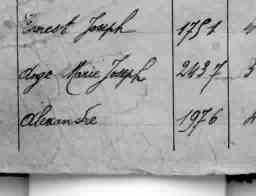 Ernest Joseph 1751 4
Ange Marie Joseph 2437 3
Alexandre 1976 4